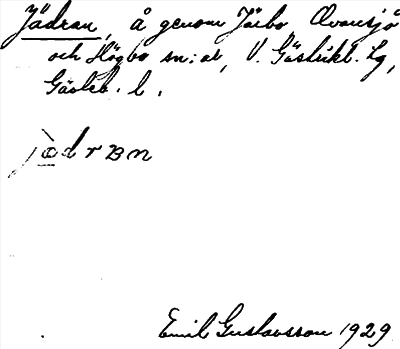 Jädran, å genom Järbo Ovansjö
och Högbo sn:ar, V. Gästrikl. tg,
Gävleb. l.
jɷdrʙn
Emil Gustavsson 1929